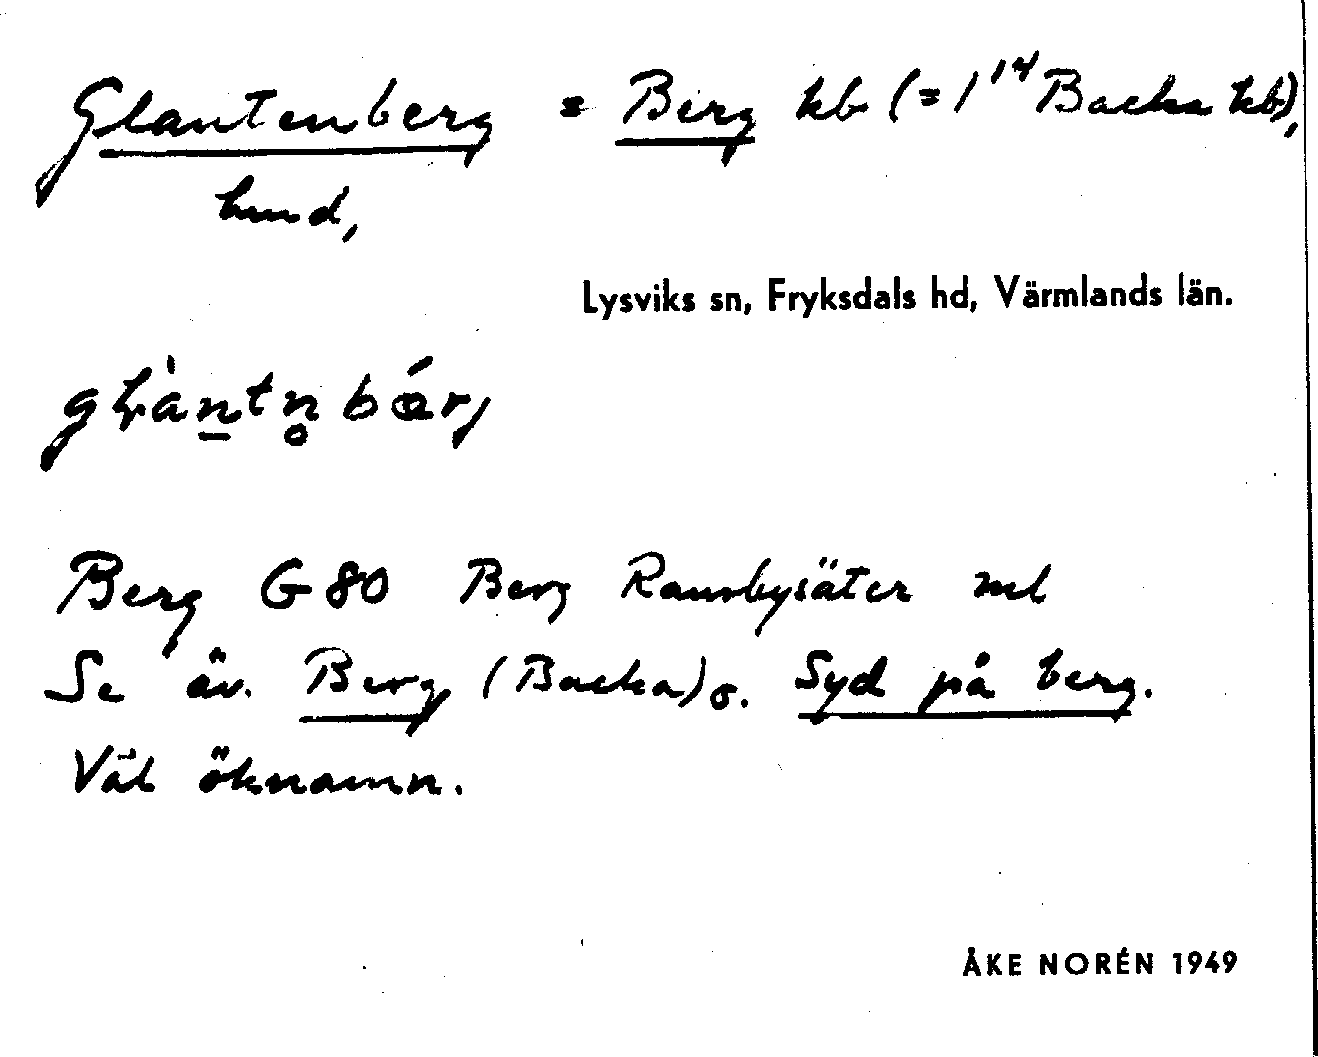 Glantenberg = Berg kb (= 1¹⁴ Backa kb),
hmd,
Lysviks sn, Fryksdals hd, Värmlands län.
Berg G80 Berg Ransbysäter ml
Se äv. Berg (Backa) o. Syd på berg.
Väl öknamn.
ÅKE NORÉN 1949